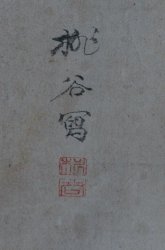 桃谷寫